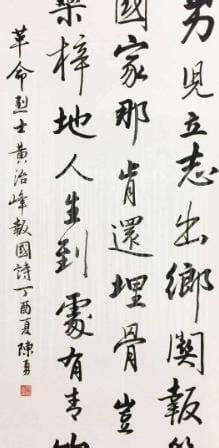 男兒立志出鄉關報答
國家那肯還埋骨豈
桑梓地人生到處有青
革命烈士黃治峰報國詩丁酉夏陳勇